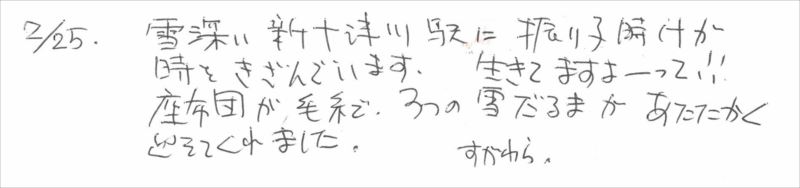 2/25. 雪深い新十津川駅に振り子時計が
時をきざんでいます。 生きてますよーって!!!
座布団が毛糸で、3つの雪だるまがあたたかく
迎えてくれました。 すがわら。